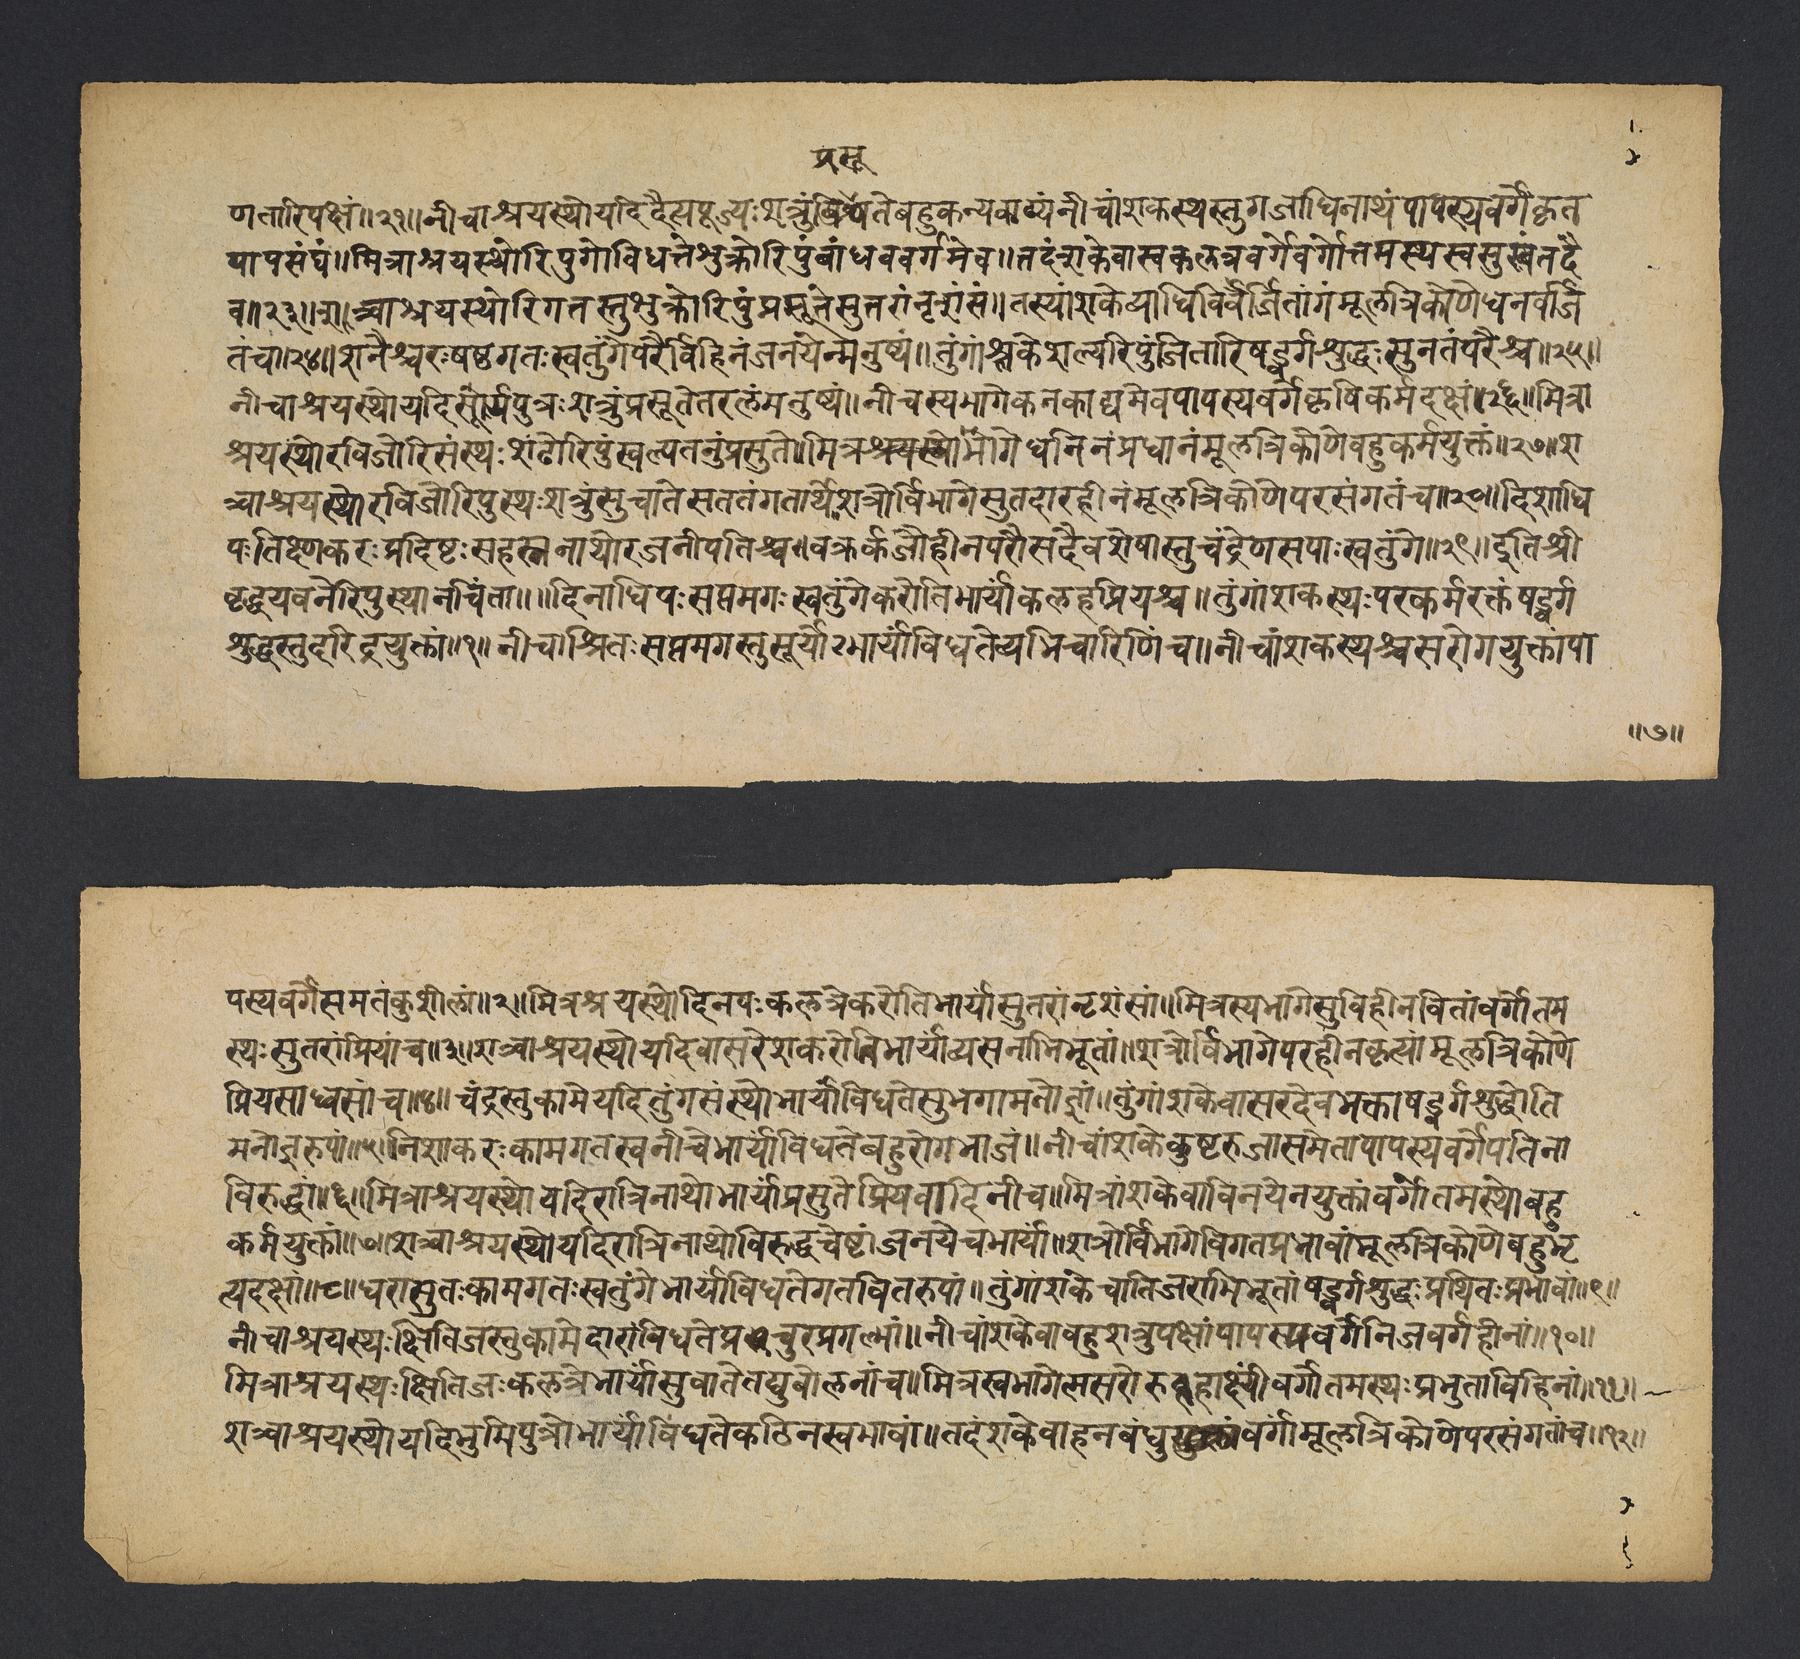 प्रसू
णतारिपक्षां॥२१॥नीचाश्रयस्थोयदिदैत्यपूज्यःशत्रुंविधतेबहुकन्यकाढ्यंनीचांशकस्थस्तुगजाधिनाथंपापस्यवर्गेकृत
पापसंघं॥मित्राश्रयस्थोरिपुगोविधत्तेशुक्रोरिपुंबांधववर्गमेव॥तदंशकेवास्वकलत्रवर्गेवर्गोत्तमस्थस्वसुखंतदै
व॥२३॥शत्र्वाश्रयस्थोरिगतस्तुशुक्रोरिपुंप्रसूतेसुतरांनृशंसं॥तस्यांशकेव्याधिविवर्जितांगंमूलत्रिकोणेधनवर्जि
तंच॥२४॥शनैश्चरःषष्ठगतःस्वतुंगेपरैर्विहिनंजनयेन्मनुष्यं॥तुंगांशकेशल्यरिपुंजितारिषड्वर्गशुद्धःसुनतंपरैश्च॥२५॥
नीचाश्रयस्थोयदिसूर्यपुत्रःशत्रुंप्रसूतेतरलंमनुष्यं॥नीचस्यभागेकनकाढ्यमेवपापस्यवर्गेकृषिकर्मदक्षां॥२६॥मित्रा
श्रयस्थोरविजोरिसंस्थःशंढोरिपुंस्वल्पतनुंप्रसुते॥मित्रश्रयस्थोभागेधनिनंप्रधानंमूलत्रिकोणेबहुकर्मयुक्तं॥२७॥श
त्र्वाश्रयस्थोरविजोरिपुस्थःशत्रुंसुचातेसततंगतार्थेशत्रोर्विभागेसुतदारहीनंमूलत्रिकोणेपरसंगतंच॥२८॥दिशाधि
पःतिक्ष्णकरःप्रदिष्टःसहस्त्रनाथोरजनीपतिश्च॥वक्रर्कजौहीनपरौसदैवशेषास्तुचंद्रेणसपाःस्वतुंगे॥२९॥इतिश्री
वृद्धयवनेरिपुस्थानचिंता॥॥दिनाधिपःसप्तमगःस्वतुंगेकरोतिभार्यांकलहप्रियश्च॥तुंगांशकस्थःपरकर्मरक्तंषड्वर्ग
शुद्धस्तुदरिद्रयुक्तां॥१॥नीचाश्रितःसप्तमगस्तुसूर्योभार्यांविधतेव्यभिचारिणिंच॥नीचांशकस्थश्चसरोगयुक्तांपा
॥७॥
पस्यवर्गेसमतंकुशीलां॥२॥मित्रश्रयस्थोदिनपःकलत्रेकरोतिभार्यांसुतरांनृशंसां॥मित्रस्यभागेसुविहीनवितांवर्गोतम
स्थःसुतरांप्रियांच॥३॥शत्र्वाश्रयस्थोयदिवासरेशकरोतिभार्यांव्यसनाभिभूतां॥शत्रोर्विभागेपरहीनकृत्यांमूलत्रिकोणे
प्रियसाध्वसांच॥४॥चंद्रस्तुकामेयदितुंगसंस्थोभार्यांविधतेसुभगामनोज्ञां॥तुंगांशकेवासरदेवभक्ताषड्वर्गशुद्धोति
मनोज्ञरुपां॥५॥निशाकरःकामगतस्वनीचेभार्यांविधतेबहुरोगभाजं॥नीचांशकेकुष्टरुजासमेतापापस्यवर्गेपतिना
विरुद्धां॥६॥मित्राश्रयस्थोयदिरात्रिनाथोभार्यांप्रसुतेप्रियवादिनीच॥मित्रांशकेवाविनयेनयुक्तांवर्गोतमस्थोबहु
कर्मयुक्तां॥७॥शत्र्वाश्रयस्थोयदिरात्रिनाथोविरुद्धचेष्टांजनयेचभार्यां॥शत्रोर्विभागेविगतप्रभावांमूलत्रिकोणेबहुभृ
त्यदक्षां॥८॥धरासुतःकामगतःस्वतुंगेभार्यांविधतेगतवितरुपां॥तुंगांशकेचातिजराभिभूतांषड्वर्गशुद्धःप्रथितःप्रभावां॥९॥
नीचाश्रयस्थःक्षितिजस्तुकामेदारांविधतेप्रचुरप्रगल्भां॥नीचांशकेवाबहुशत्रुपक्षांपापस्यवर्गेनिजवर्गहीनां॥१०॥
मित्राश्रयस्थःक्षितिजःकलत्रेभार्यांसुवातेतघुवोलनांच॥मित्रस्वभागेत्मसरोरुहाक्षींवर्गोतमस्थःप्रभुताविहिनां॥११॥
शत्र्वाश्रयस्थोयदिभुमिपुत्रोभार्यांविधतेकठिनस्वभावां॥तदंशकेवाहनबंधुवर्गांमूलत्रिकोणेपरसंगतांच॥१२॥